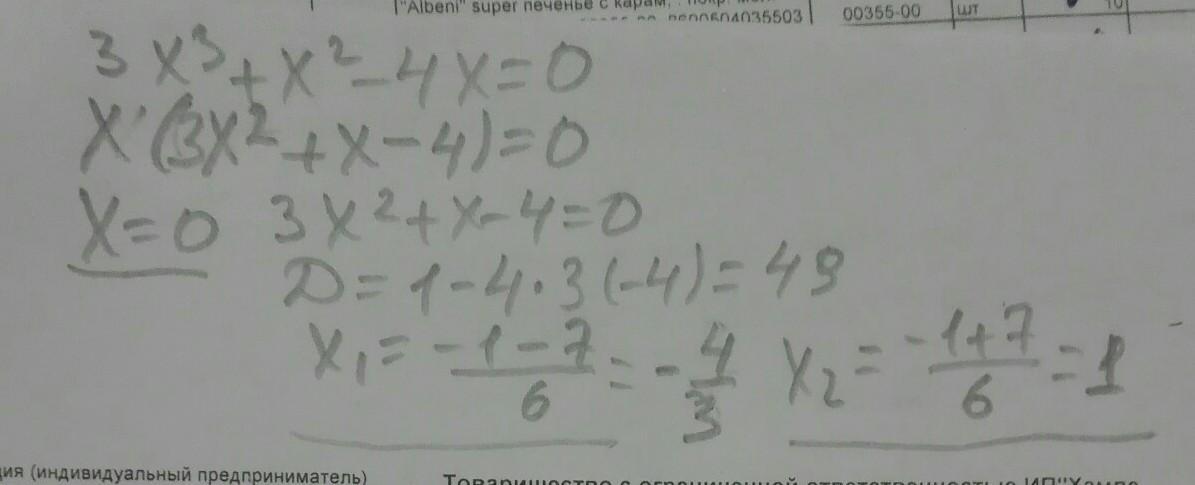 "Albeni" super печенье с карам,
00355-00 шт 10
3x³+x²-4x=0
x·(3x²+x-4)=0
x=0 3x²+x-4=0
D=1-4·3(-4)=49
x₁=-1-7/6=-4/3 x₂=-1+7/6=1
(индивидуальный предприниматель)
Товарищество с ограниченной ответственностью ИП"